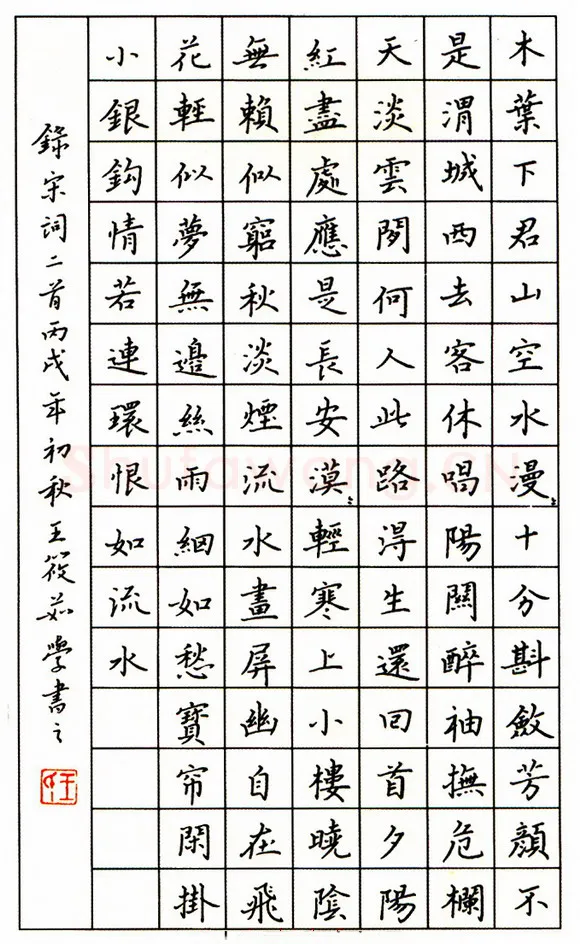 木葉下君山空水漫〻十分斟斂芳顏不
是渭城西去客休唱陽關醉袖撫危欄
天淡雲閒何人此路得生還回首夕陽
紅盡處應是長安漠〻輕寒上小樓曉陰
無賴似窮秋淡煙流水畫屏幽自在飛
花輕似夢無邊絲雨細如愁寶帘閑掛
小銀鈎情若連環恨如流水
錄宋詞二首丙戌年初秋王筱茹學書之
Shufawang.CN